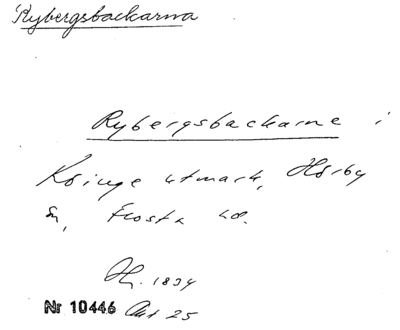 Rybergsbackarna
Rybergsbackarne i
Kringe utmark, Hörby
sn, Frosta hd.
1834
Nr 10446 Akt 25